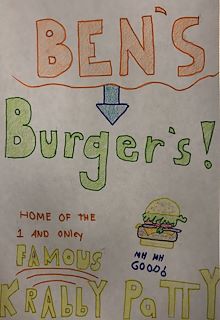 BEN'S
Burger's!
HOME OF THE
1 AND ONLEY
FAMOUS
MH MH
GOOD!
KRABBY PATTY